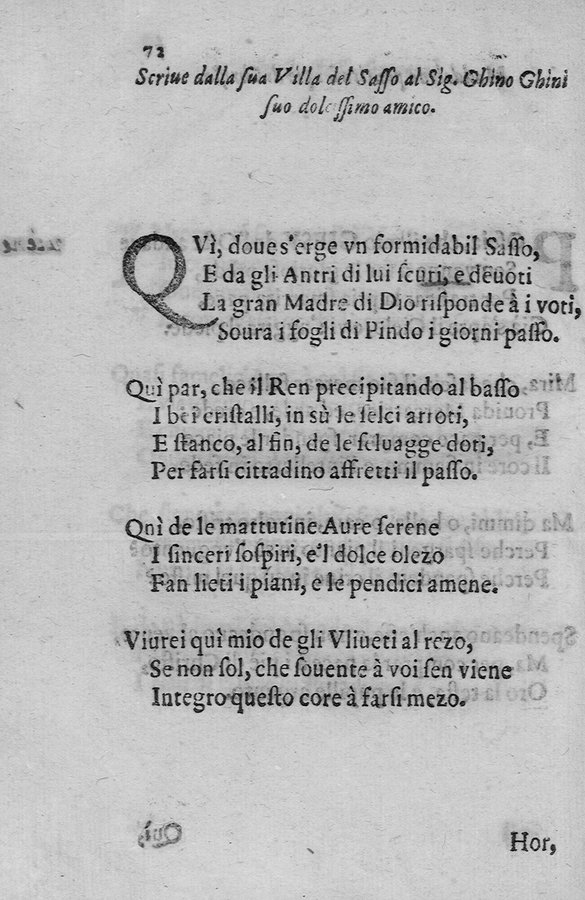 72
Scriue dalla ſua Villa del Saſſo al Sig. Ghino Ghini
ſuo dolciſſimo amico.
QVì, doue s'erge vn formidabil Saſſo,
E da gli Antri di lui ſcuri, e deuoti
La gran Madre di Dio riſponde à i voti,
Soura i fogli di Pindo i giorni paſſo.
Quì par, che il Ren precipitando al baſſo
I bei criſtalli, in sù le ſelci arroti,
E ſtanco, al fin, de le ſeluagge doti,
Per farſi cittadino affretti il paſſo.
Qnì de le mattutine Aure ſerene
I ſinceri ſoſpiri, e'l dolce olezo
Fan lieti i piani, e le pendici amene.
Viurei quì mio de gli Vliueti al rezo,
Se non ſol, che ſouente à voi ſen viene
Integro queſto core à farſi mezo.
Hor,